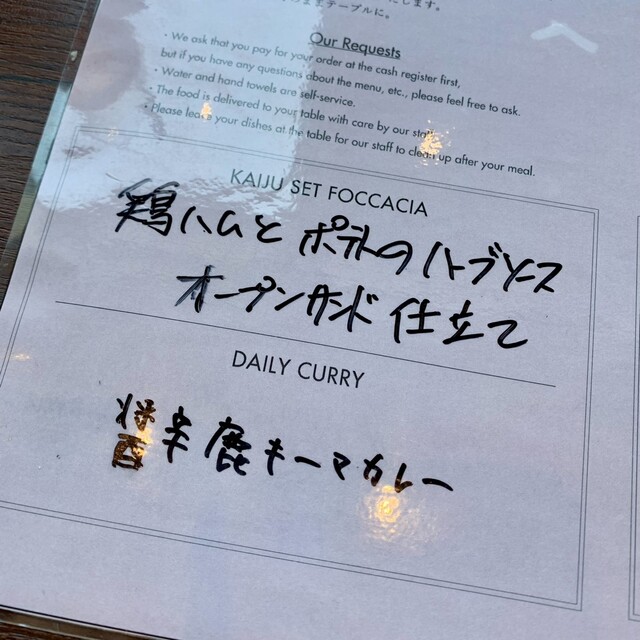 します。
テーブルに。
Our Requests
・We ask that you pay for your order at the cash register first,
but if you have any questions about the menu, etc., please feel free to ask.
・Water and hand towels are self-service.
・The food is delivered to your table with care by our staff.
・Please leave your dishes at the table for our staff to clean up after your meal.
KAIJU SET FOCCACIA
鶏ハムとポテトのハーブソース
オープンサンド仕立て
DAILY CURRY
醤辛鹿キーマカレー